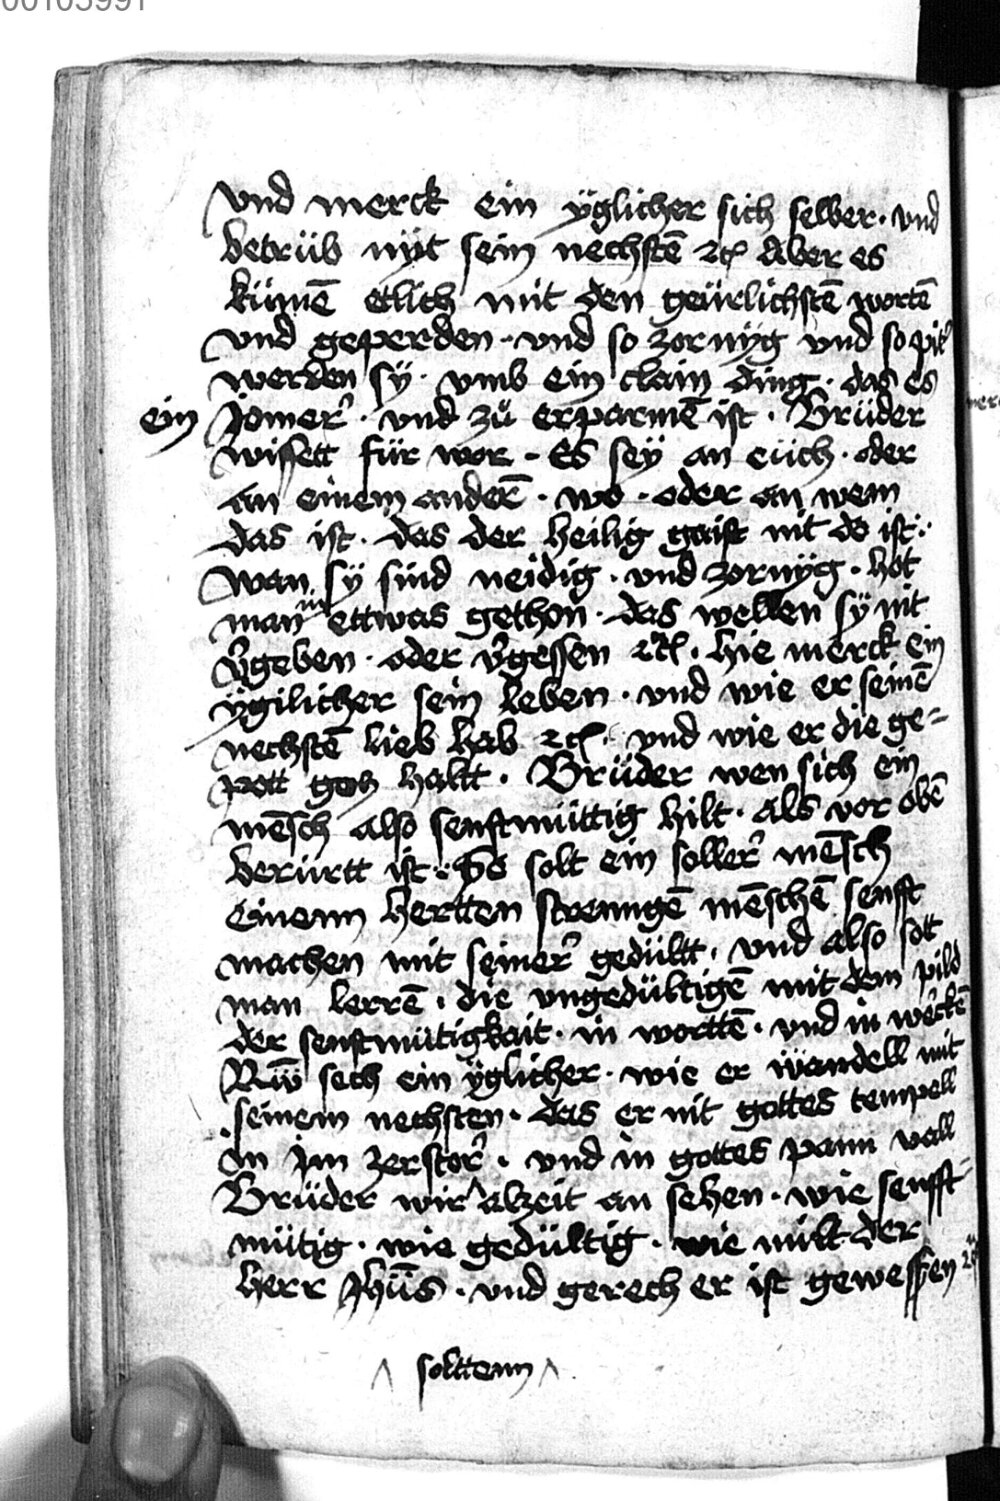 00103991
vnd merck ein yglicher sich selber · vnd
betrüb nyt sein nechstē ⁊c̄ Aber es
kümē etlich mit den geürlichstē wortē
vnd geperden · vnd so zornÿg vnd so pit̄
werden sÿ · vmb ein clain ding · das es
ein Jomer̄ · vnd zů erparmē ist · Brüder
wissett für wor · Es seÿ an eüch · oder
an einem ander̄ · wo · oder an wem
das ist · das der heilig gaist nit do ist :·
wan sÿ sind neidig · vnd zornÿg · hot
man in ettwas gethon · das wellen sÿ nit
v̄geben · oder v̄gessen ⁊c̄ · hie merck ein
ÿgilicher sein leben · vnd wie er seinē
nechstē lieb hab ⁊c̄ · vnd wie er die ge=
pott gotz haltt · Brüder wen sich ein
mēsch also senftmüttig hilt · als vor obē
berürtt ist :· So solt ein soller̄ mēsch
Einem hertten strenngē mēschē senfft
machen mit seiner̄ gedültt · vnd also sott
man lerrē · die vngedültigē mit dem pild
der senftmütigkait · in worttē · vnd in werckē
Nw̄ sech ein ÿglicher · wie er wandell mit
seinem nechsten · das er nit gottes tempell
In Jm zerstör̄ · vnd in gottes pann vall
Brüder wir ^ alzeit an sehen · wie senfft=
mütig · wie gedültig · wie milt der
herr Jhüs · vnd gerech er ist gewessen ⁊c̄
^ solttenn ^